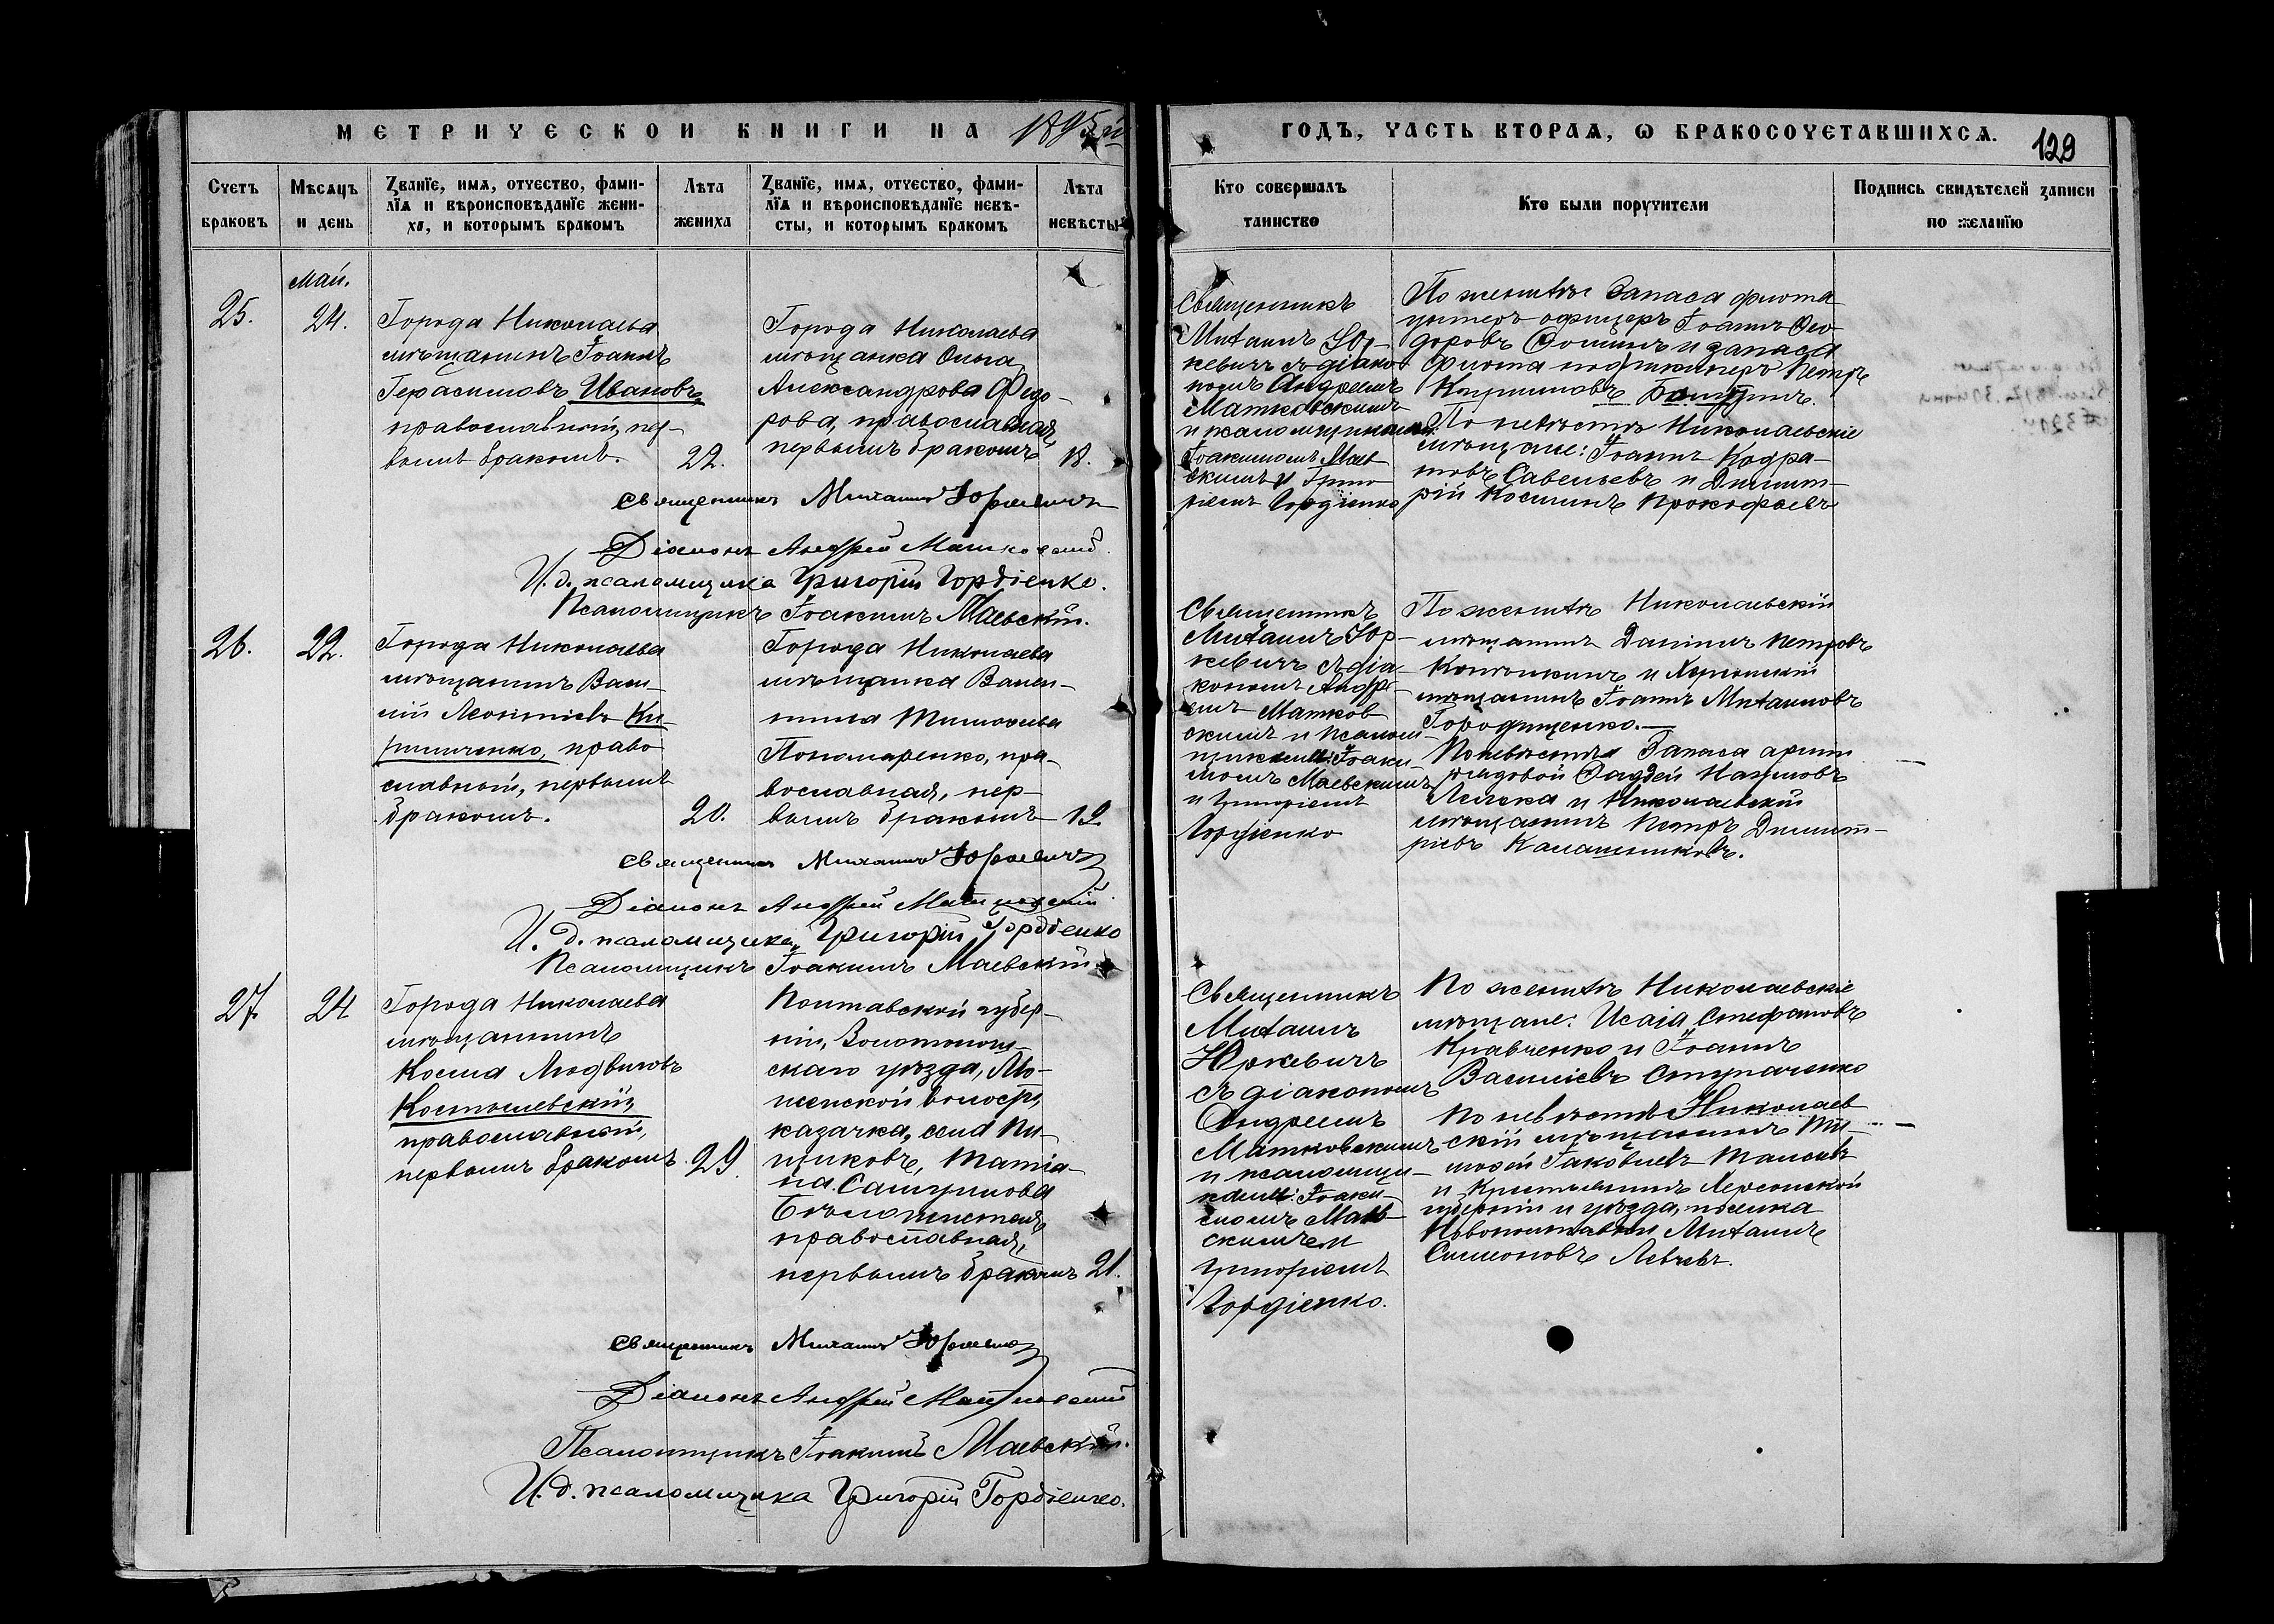 МЕТРИЧЕСКОЙ КНИГИ НА 1895 й
ГОДЪ, ЧАСТЬ ВТОРАЯ, Ѡ БРАКОСОЧЕТАВШИХСЯ.
129
Счетъ браковъ
Мѣсяцъ и день
Званїе, имя, отчество, фами-
лїя и вѣроисповѣданїе жени-
ха, и которымъ бракомъ
Лѣта жениха
Званїе, имя, отчество, фами-
лїя и вѣроисповѣданїе невѣ-
сты, и которымъ бракомъ
Лѣта невѣсты
Кто совершалъ
таинство
Кто были поручители
Подпись свидѣтелей записи
по желанїю
25.
Май.
24.
Города Николаева
мѣщанинъ Іоаннъ
Герасимовъ Ивановъ,
православный, пер-
вымъ бракомъ.
22.
Города Николаева
мѣщанка Ольга
Александрова Федо-
рова, православная,
первымъ бракомъ
18.
Священникъ
Михаилъ Юр-
кевичъ съ діако-
номъ Андреемъ
Матковскимъ
и псаломщиками:
Іоакимомъ Маев
скимъ и Григо
ріемъ Гордіенко
По женихѣ: Запаса флота
унтеръ офицеръ Іоаннъ Фео
доровъ Фоминъ и запаса
флота Петръ
Кирилловъ
По невѣстѣ Николаевскіе
мѣщане: Іоаннъ Кодра-
товъ Савельевъ и Димит-
рій Косминъ Прокофьевъ
Священникъ Михаилъ Юркевичъ
Діаконъ Андрей Матковскій.
И. д. псаломщика Григорій Гордіенко.
Псаломщикъ Іоакимъ Маевскій.
26.
22.
Города Николаева
мѣщанинъ Васи-
лій Леонтіевъ Ки-
риличенко, право
славный, первымъ
бракомъ.
20.
Города Николаева
мѣщанка Вален-
тина Тимофеева
Пономаренко, пра-
вославная, пер-
вымъ бракомъ
19.
Священникъ
Михаилъ Юр-
кевичъ съ діа-
кономъ Андре-
емъ Матков
скимъ и псалом-
щиками: Іоаки-
момъ Маевскимъ
и Григоріемъ
Гордіенко
По женихѣ Николаевскій
мѣщанинъ Даніилъ Петровъ
и Херсонскій
мѣщанинъ Іоаннъ Михаиловъ
Городищенко.—
По невѣстѣ Запаса арміи
рядовой Фаддей Наумовъ
и Николаевскій
мѣщанинъ Петръ Димит-
ріевъ Калашниковъ.
Священникъ Михаилъ Юркевичъ
Діаконъ Андрей Матковскій
И. д. псаломщика, Григорій Гордіенко
Псаломщикъ Іоакимъ Маевскій
27.
24
Города Николаева
мѣщанинъ
Косма Людвиговъ
Костышевскій,
православный,
первымъ бракомъ
29.
Полтавской губер-
ніи, Золотонош-
скаго уѣзда,
волости,
казачка, села Пи-
щиковъ, Татіа-
на Самуилова
православная,
первымъ бракомъ
21.
Священникъ
Михаилъ
Юркевичъ
съ діакономъ
Андреемъ
Матковскимъ
и псаломщи-
ками: Іоаки-
момъ Маев-
скимъ и
Григоріемъ
Гордіенко.
По женихѣ Николаевскіе
мѣщане: Исаія Стефановъ
Кравченко и Іоаннъ
Василіевъ Ступаченко
По невѣстѣ Николаев
скій мѣщанинъ Ти-
мофей Іаковлевъ
и крестьянинъ Херсонской
губерніи и уѣзда, поселка
Новополтавки Михаилъ
Симеоновъ
Священникъ Михаилъ Юркевичъ
Діаконъ Андрей Матковскій
Псаломщикъ Іоакимъ Маевскій.
И. д. псаломщика Григорій Гордіенко.